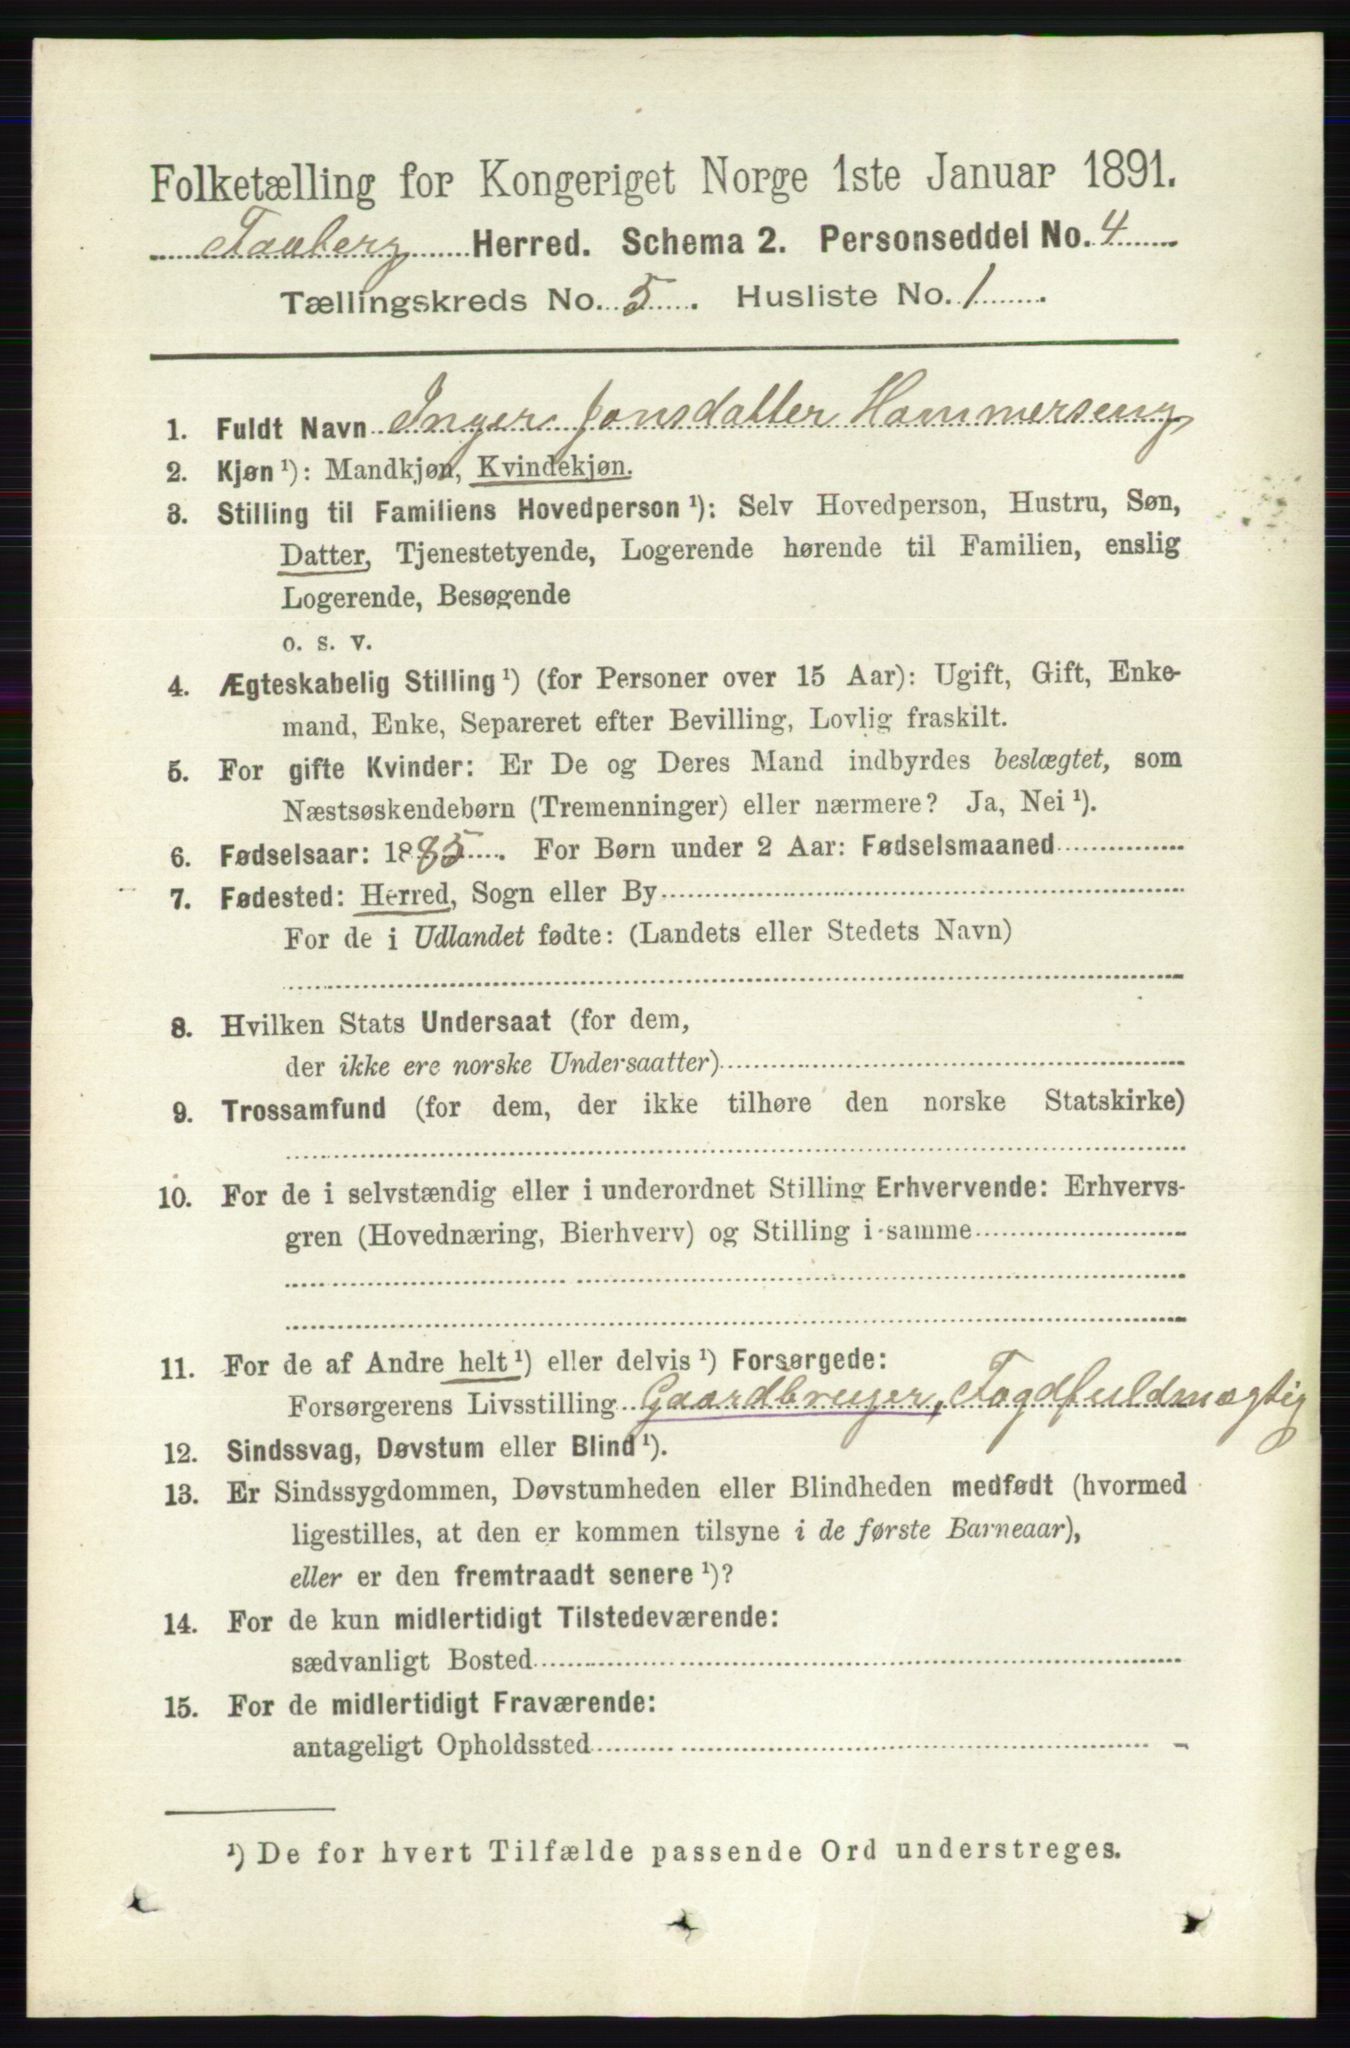 Folketælling for Kongeriget Norge 1ste Januar 1891.
Faaberg Herred. Schema 2. Personseddel No. 4
Tællingskreds No. 5. Husliste No. 1.
1. Fuldt Navn Inger Jonsdatter Hammerseng
2. Kjøn ¹): Mandkjøn, Kvindekjøn.
3. Stilling til Familiens Hovedperson ¹): Selv Hovedperson, Hustru, Søn,
Datter, Tjenestetyende, Logerende hørende til Familien, enslig
Logerende, Besøgende
o. s. v.
4. Ægteskabelig Stilling ¹) (for Personer over 15 Aar): Ugift, Gift, Enke-
mand, Enke, Separeret efter Bevilling, Lovlig fraskilt.
5. For gifte Kvinder: Er De og Deres Mand indbyrdes beslægtet, som
Næstsøskendebørn (Tremenninger) eller nærmere? Ja, Nei ¹).
6. Fødselsaar: 1885. For Børn under 2 Aar: Fødselsmaaned
7. Fødested: Herred, Sogn eller By
For de i Udlandet fødte: (Landets eller Stedets Navn)
8. Hvilken Stats Undersaat (for dem,
der ikke ere norske Undersaatter)
9. Trossamfund (for dem, der ikke tilhøre den norske Statskirke)
10. For de i selvstændig eller i underordnet Stilling Erhvervende: Erhvervs-
gren (Hovednæring, Bierhverv) og Stilling i samme
11. For de af Andre helt ¹) eller delvis ¹) Forsørgede:
Forsørgerens Livsstilling Gaardbruger, Fogdfuldmægtig
12. Sindssvag, Døvstum eller Blind ¹).
13. Er Sindssygdommen, Døvstumheden eller Blindheden medfødt (hvormed
ligestilles, at den er kommen tilsyne i de første Barneaar),
eller er den fremtraadt senere ¹)?
14. For de kun midlertidigt Tilstedeværende:
sædvanligt Bosted
15. For de midlertidigt Fraværende:
antageligt Opholdssted
¹) De for hvert Tilfælde passende Ord understreges.